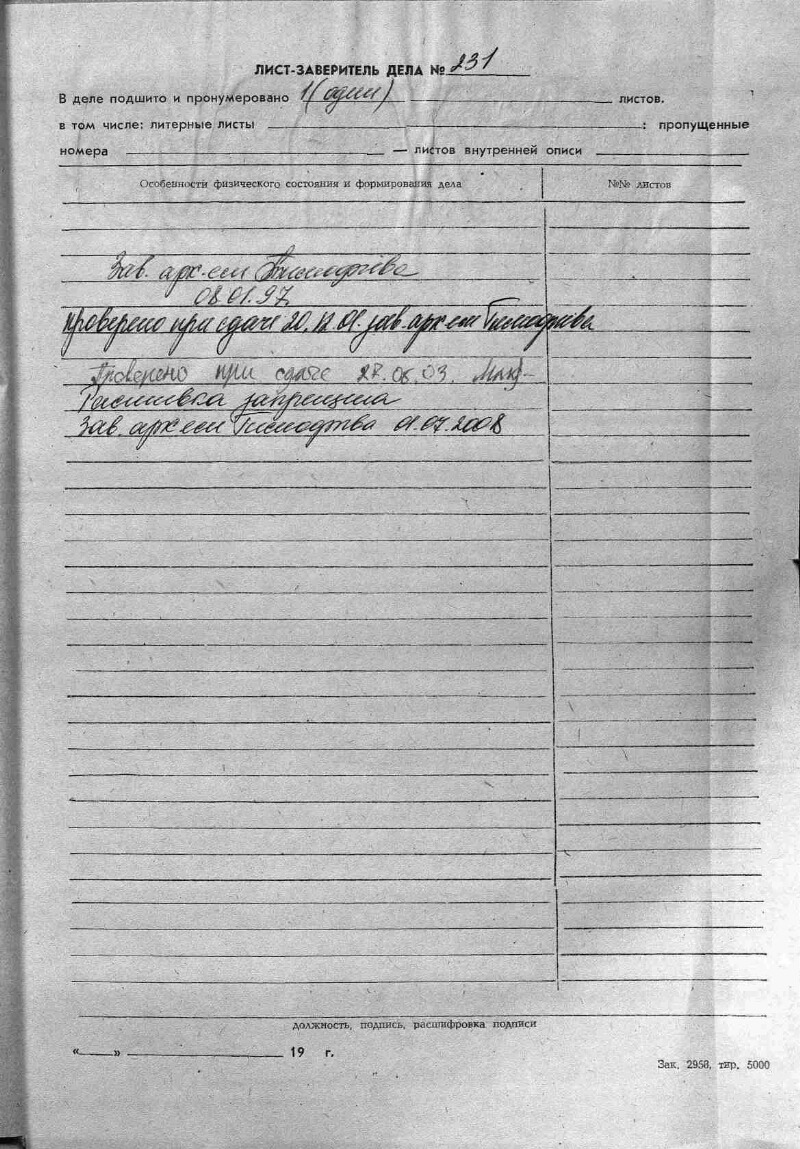 ЛИСТ-ЗАВЕРИТЕЛЬ ДЕЛА № 231
В деле подшито и пронумеровано 1 (один) листов.
в том числе: литерные листы ; пропущенные
номера — листов внутренней описи
Особенности физического состояния и формирования дела №№ листов
Зав. арх-ем
08.01.97.
Проверено при сдаче 20.12.01. зав. арх-ем
Проверено при сдаче 27.06.03.
Расшивка запрещена
Зав. арх-ем 01.07.2008
должность, подпись, расшифровка подписи
«___» 19 г.
Зак. 2958, тир. 5000